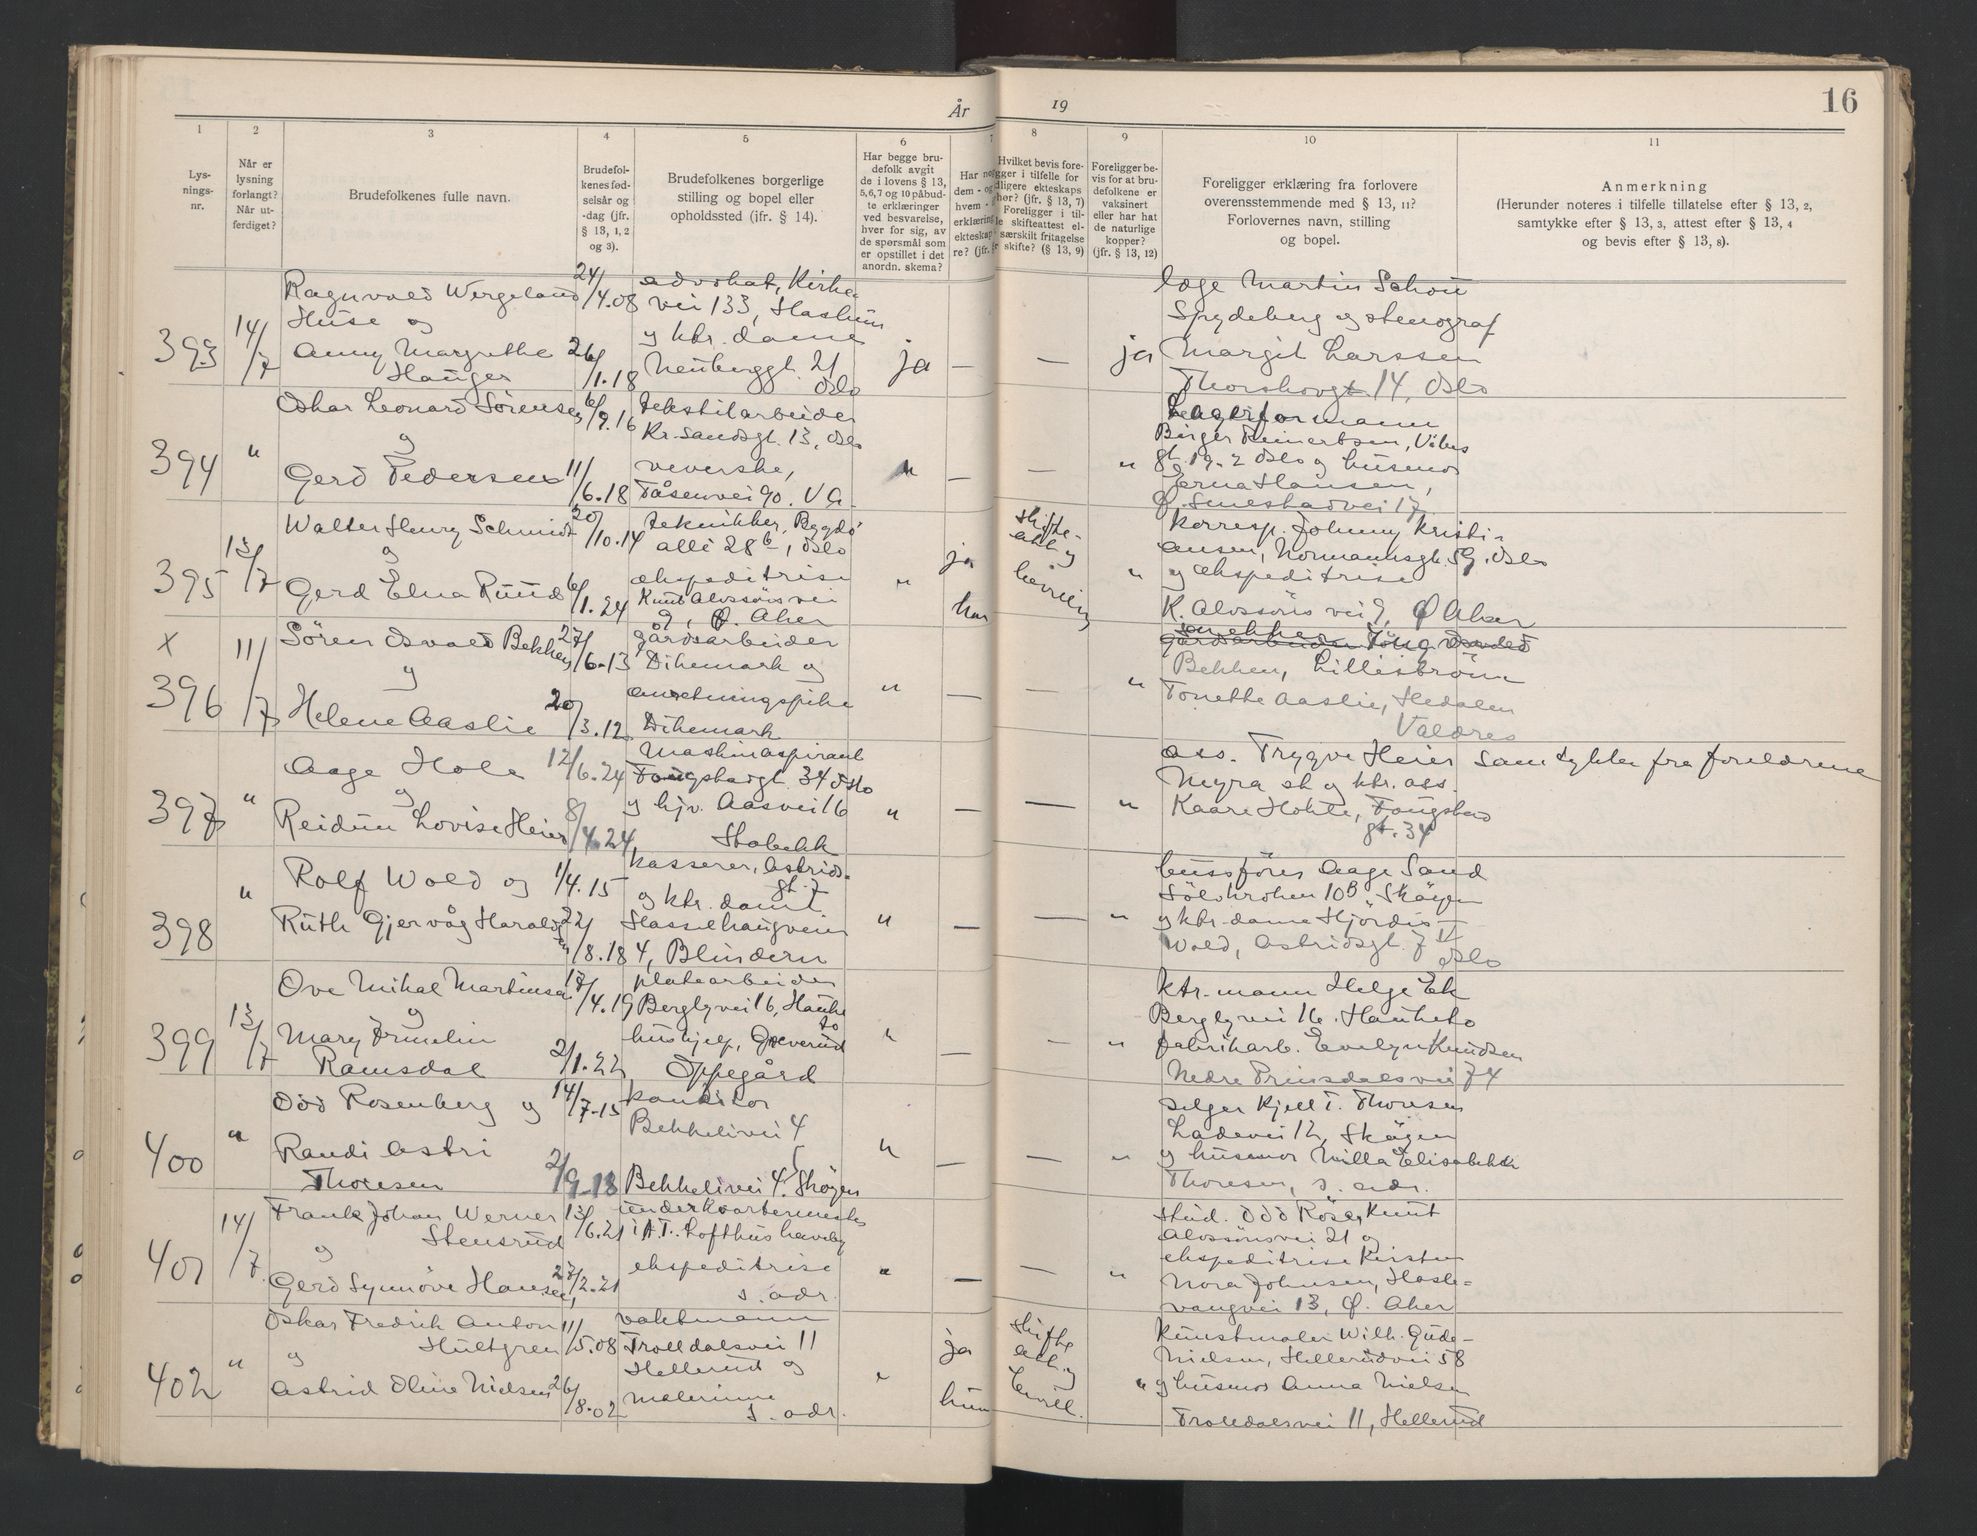 År
19
16
1
2
3
4
5
6
7
8
9
10
11
Lys-
nings-
nr.
Når er
lysning
forlangt?
Når ut-
ferdiget?
Brudefolkenes fulle navn.
Brudefol-
kenes fød-
selsår og
-dag (jfr.
§ 13, 1, 2
og 3).
Brudefolkenes borgerlige
stilling og bopel eller
opholdssted (jfr. § 14).
Har begge bru-
defolk avgit
de i lovens § 13,
5,6,7 og 10 påbud-
te erklæringer
ved besvarelse,
hver for sig, av
de spørsmål som
er opstillet i det
anordn. skema?
Har no
dem - og
hvem -
erklæring
ekteskap
re? (jfr.
Hvilket bevis fore-
gger i tilfelle for
dligere ekteskaps
hør? (jfr. § 13, 7)
Foreligger i til-
le skifteattest el-
særskilt fritagelse
r skifte? (§ 13, 9)
Foreligger be-
vis for at bru-
defolkene er
vaksinert
eller har hat
de naturlige
kopper?
(jfr. § 13, 12)
Foreligger erklæring fra forlovere
overensstemmende med § 13, 11?
Forlovernes navn, stilling
og bopel.
Anmerkning
(Herunder noteres i tilfelle tillatelse efter § 13, 2,
samtykke efter § 13, 3, attest efter § 13, 4
og bevis efter § 13, 8).
393
14/7
Ragnvald Wergeland
Huse og
Anny Margrethe
Hauger
24/4.08
26/1.18
advokat, Kirke
vei 133, Haslum
og ktr. dame
Neuberggt. 21
Oslo
ja
—
—
ja
læge Martin Schou
Spydeberg og stenograf
Margit Larssen
Thorshovgt 14, Oslo
394
"
Oskar Leonard Sörensen
og
Gerd Pedersen
6/9.16
11/6.18
tekstilarbeider
Kr. Sandsgt. 13, Oslo
veverske,
Tåsenvei 90. V A.
"
—
—
"
Lagerformann
Birger Reinertsen, Vibes
gt. 19.2 Oslo og husmor
Jerna Hansen,
Ø. Smestadvei 17
395
13/7
Walter Henry Schmidt
og
Gerd Elna Ruud
20/10.14
6/1.24
tekniker, Bygdö
allé 28b, Oslo
ekspeditrise
Knut Alvssöns vei
9, Ø. Aker
"
ja
han
skifte-
att. og
bevilling
"
Korresp. Johnny Kristi-
ansen, Normannsgt. 59, Oslo
og ekspeditrise
K. Alvssöns vei 9, Ø Aker
x
396
11/7
Sören Osvald Bekken
og
Helene Aaslie
27/6-13
20/3.12
gårdsarbeider
Dikemark og
anretningspike
Dikemark
"
—
—
"
Bekken, Lilleström
Tonette Aaslie, Hedalen
Valdres
397
"
Aage Hole
og
Reidun Lovise Heier
12/6.24
8/4.24
Maskinaspirant
Tougstadgt. 34 Oslo
og hjv. Aasvei 16
Stabekk
"
—
—
"
ass. Trygve Heier
Myra st og ktr. ass.
Kaare Hokte, Tougstad
gt. 34
Samtykke fra foreldrene
398
"
Rolf Wold og
Ruth Gjervåg Haralds
en
1/4.15
22/8.18
kasserer, Astrids-
gt. 7
og ktr. dame
Hasselhaugveien
4, Blindern
"
—
—
"
bussförer Aage Sand
Sölvkroken 10B, Sköyen
og ktr. dame Hjördis
Wold, Astridsgt. 7 II
Oslo
399
13/7
Ove Mikal Martinsen
og
Mary Irmelin
Ramsdal
17/4.19
2/1.22
platearbeider
Berglyvei 16, Hauke
to
hushjelp, Greverud
Oppegård
"
—
—
"
ktr. mann Helge Ek
Berglyvei 16. Hauketo
fabrikarb. Evelyn Knudsen
Nedre Prinsdalsvei 74
400
"
Odd Rosenberg og
Randi Astri
Thoresen
14/7-15
2/9-18
konditor
Bekkelivei 4
Bekkelivei 4. Sköyen
"
—
—
"
selger Kjell T. Thoresen
Ladevei 12, Sköyen
og husmor Milla Elisabeth
Thoresen, s. adr.
401
14/7
Frank Johan Werner
Stensrud
og
Gerd Synnöve Hansen,
13/6.21
27/2.21
underkvartermester
i A.T. Lofthus haveby
ekspeditrise
s. adr.
"
—
—
"
stud. Odd Röse, Knut
Alvssönsvei 21 og
ekspeditrise Kirsten
Nora Johnsen, Hasle-
vangvei 13, Ø. Aker
402
"
Oskar Fredrik Anton
Hultgren
og
Astrid Oline Nielsen
11/5.08
26/8.02
vaktmann
Trolldalsvei 11
Hellerud og
malerinne
s. adr.
"
ja
hun
skifte
att. og
bevill.
"
Kunstmaler Wilh. Gude-
Nielsen, Hellerudvei 58
og husmor Anna Nielsen
Trolldalsvei 11, Hellerud